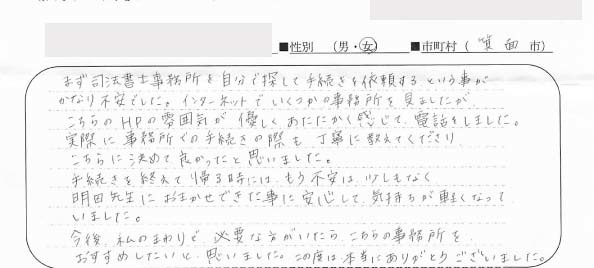 ■性別 （男・女） ■市町村（ 箕面 市）
まず司法書士事務所を自分で探して手続きを依頼するという事が
かなり不安でした。インターネットでいくつかの事務所を見ましたが、
こちらのHPの雰囲気が優しくあたたかく感じて、電話をしました。
実際に事務所での手続きの際も、丁寧に教えてくださり、
こちらに決めて良かったと思いました。
手続きを終えて帰る時には、もう不安は少しもなく
明田先生におまかせできた事に安心して、気持ちが軽くなって
いました。
今後、私のまわりで、必要な方がいたら、こちらの事務所を、
おすすめしたいと、思いました。この度は本当にありがとうございました。